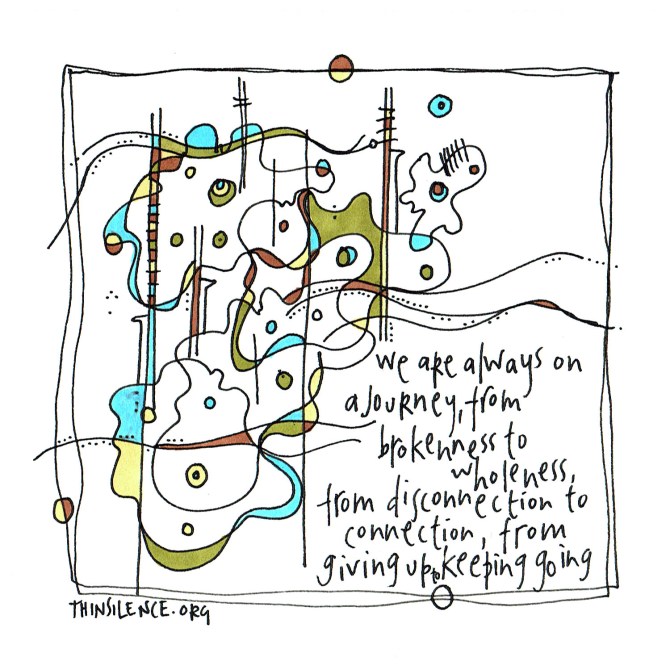 we are always on
a journey, from
brokenness to
wholeness,
from disconnection to
connection, from
giving up to keeping going
THINSILENCE.ORG